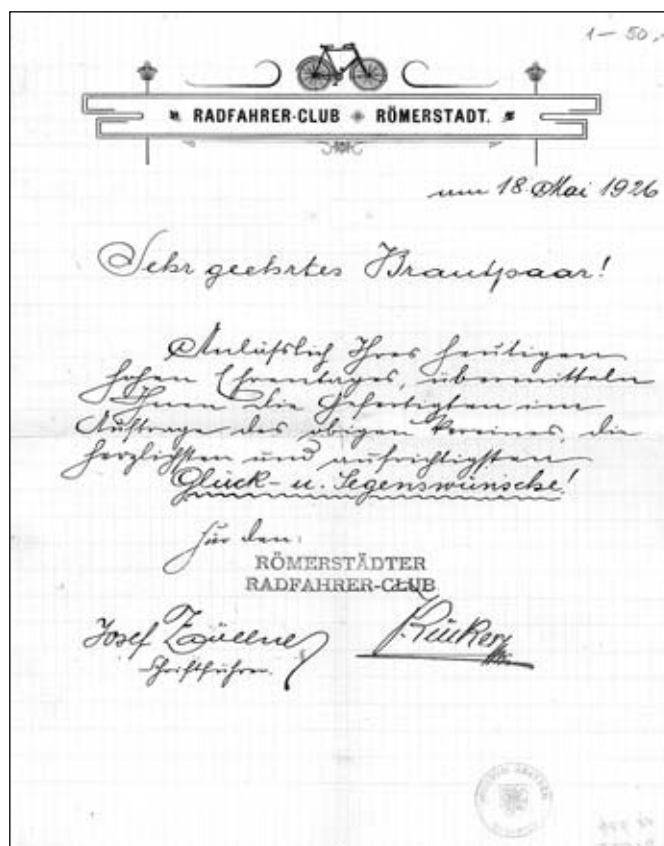 1 – 50,-
RADFAHRER-CLUB RÖMERSTADT.
am 18. Mai 1926
Sehr geehrtes Brautpaar!
Anläßlich Ihres heutigen
hohen Ehrentages, übermitteln
Ihnen die Gefertigten im
Auftrage des obigen Vereines, die
herzlichsten und aufrichtigsten
Glück- u. Segenswünsche!
Für den:
RÖMERSTÄDTER
RADFAHRER-CLUB
Josef
Schriftführer.